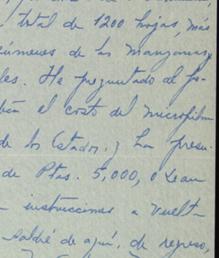 total de 1200 hojas, más
números de las manzanas,
les. He preguntado al fo-
el costo del microfilm
de los Estados, y han presu-
de Ptas. 5,000, o sean
instrucciones a vuelt-
saldré de aquí, de regreso,